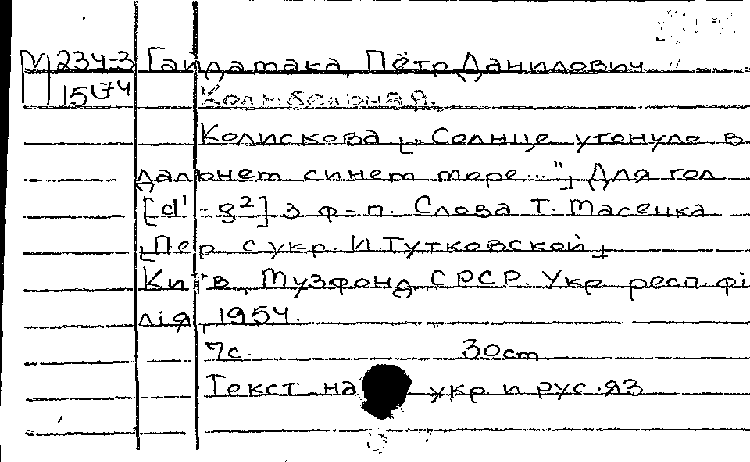 М 234-3 Гайдамака, Пётр Данилович
15474 Колыбельная.
Колискова. [„Солнце утонуло в
дальнем синем море..."] Для гол.
[d¹-g²] з ф-п. Слова Т. Масенка
[Пер. с укр. И. Тутковской]
Київ, Музфонд СРСР. Укр. респ. фі
лія, 1954.
7с. 30cm
Текст на укр. и рус. яз